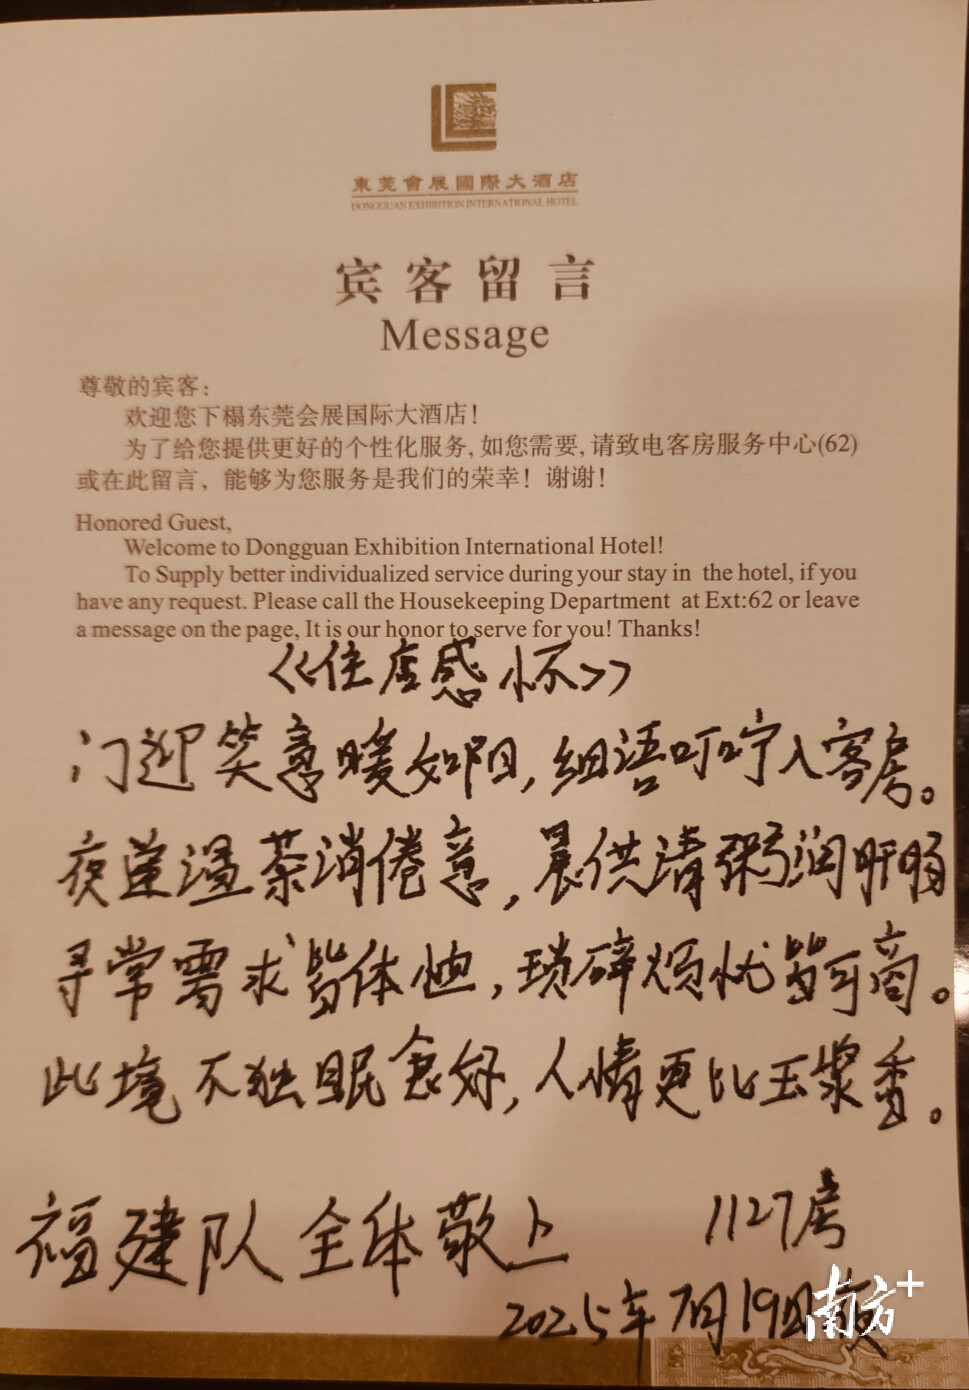 東莞會展國際大酒店
DONGGUAN EXHIBITION INTERNATIONAL HOTEL
宾客留言
Message
尊敬的宾客：
欢迎您下榻东莞会展国际大酒店！
为了给您提供更好的个性化服务, 如您需要, 请致电客房服务中心(62)
或在此留言、能够为您服务是我们的荣幸！谢谢！
Honored Guest,
Welcome to Dongguan Exhibition International Hotel!
To Supply better individualized service during your stay in the hotel, if you
have any request. Please call the Housekeeping Department at Ext:62 or leave
a message on the page, It is our honor to serve for you! Thanks!
《住店感怀》
门迎笑意暖如阳,细语叮咛入客房。
夜莹温茶消倦意,晨供清粥润肝肠
寻常需求皆体恤,琐碎烦忧皆可商。
此境不独眠食好,人情更比玉浆香。
福建队全体敬上 1127房
2025年7月19日夜
南方+